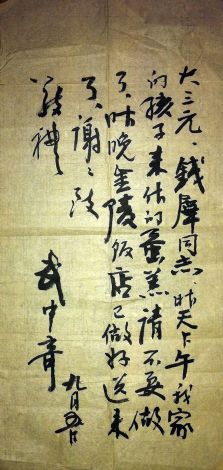 大三元、錢犀同志、昨天上午我家
的孩子来的蛋羔请不要做
了、昨晚金陵饭店已做好送来
了、謝〻、致
礼
武中奇
九月五日